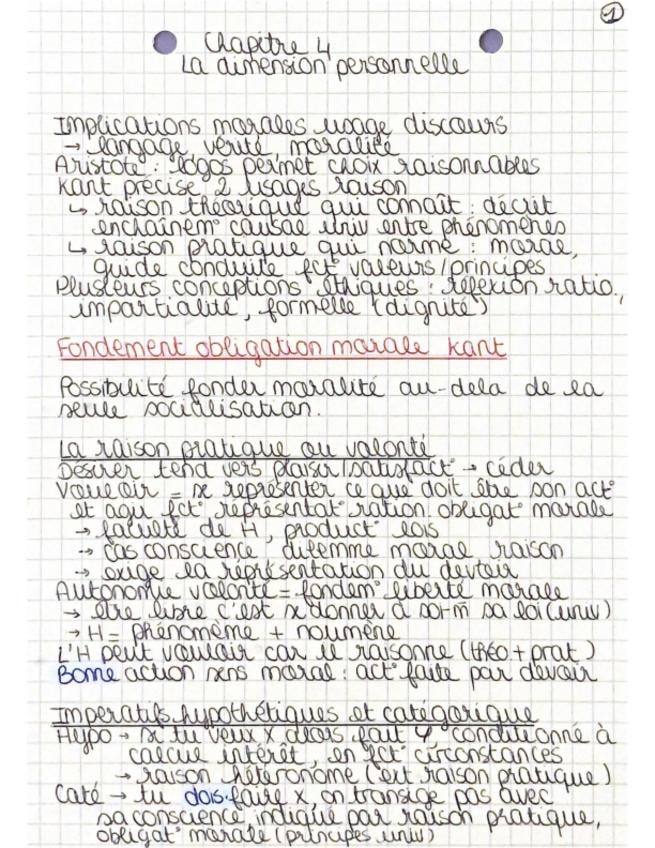 1
Chapitre 4
La dimension personnelle
Implications morales usage discours
→ langage, vérité, moralité
Aristote : logos permet choix raisonnables
Kant précise 2 usages raison
↳ raison théorique qui connaît : décrit
enchaînem° causal univ entre phénomènes
↳ raison pratique qui norme : moral,
guide conduite fct° valeurs/principes
Plusieurs conceptions éthiques : réflexion ratio.,
impartialité, formelle (dignité)
Fondement obligation morale Kant
Possibilité fonder moralité au-dela de la
seule socialisation.
La raison pratique ou volonté
Désirer tend vers plaisir/satisfact° → céder
Vouloir = se représenter ce que doit être son act°
et agir fct° représentat° ration. obligat° morale
→ faculté de H, product° lois
→ cas conscience, dilemme moral, raison
→ exige la représentation du devoir
Autonomie volonté = fondem° liberté morale
→ être libre c'est se donner à soi-m̂ sa loi (univ)
→ H = phénomème + noumène
L'H peut vouloir car il raisonne (théo. + prat.)
Bonne action sens moral : act° faite par devoir
Imperatifs hypothétiques et catégorique
Hypo → si tu veux X alors fait Y conditionné à
calcul intérêt, en fct° circonstances
→ raison hétéronome (ext raison pratique)
Caté → tu dois faire x, on transige pas avec
sa conscience, indiqué par raison pratique,
obligat° morale (principes univ)